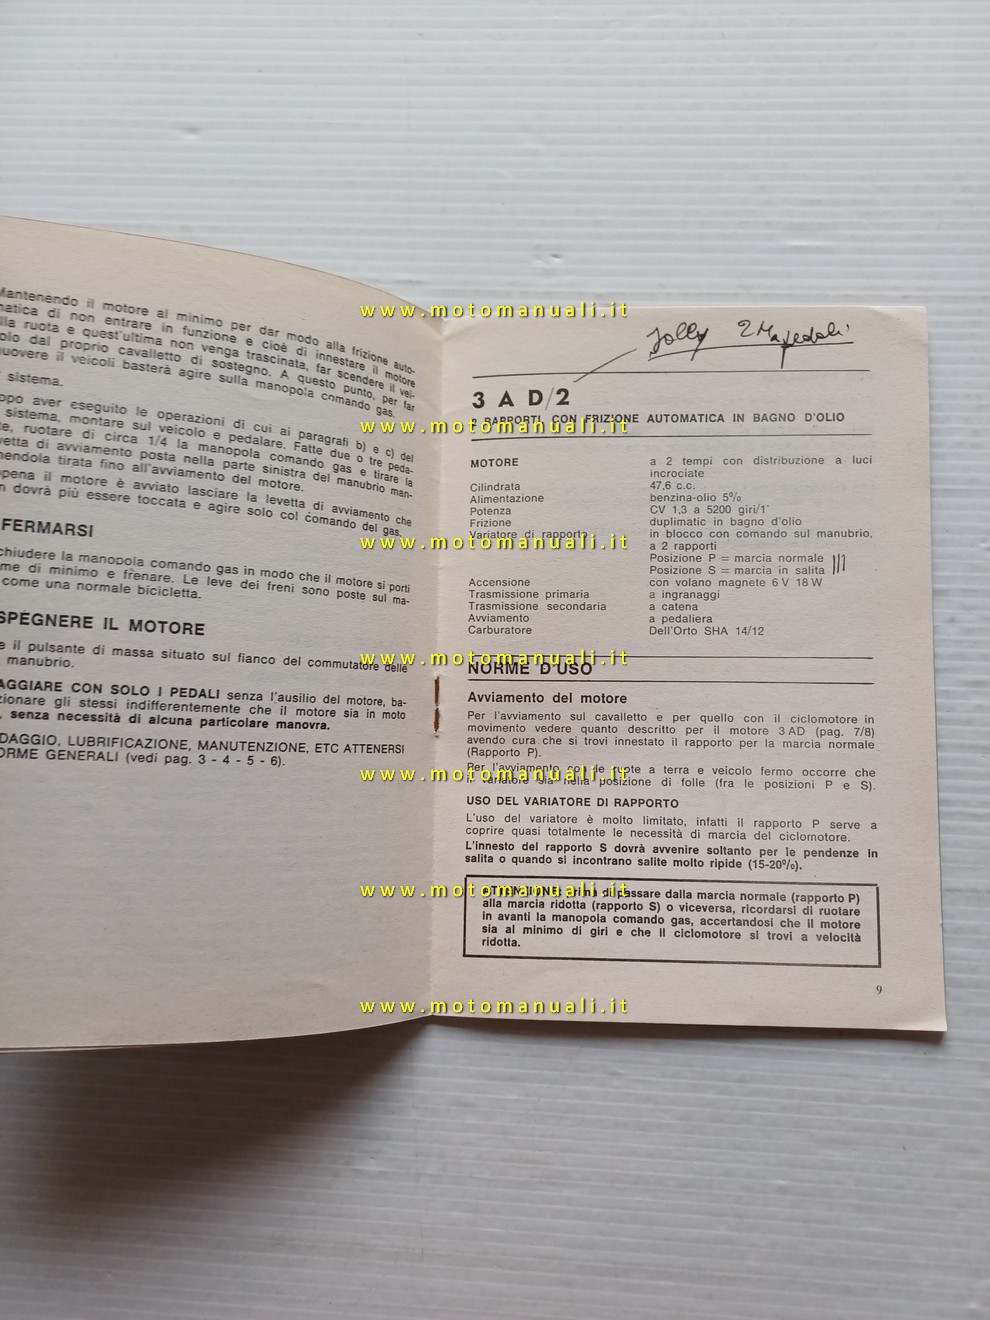 Mantenendo il motore al minimo per dar modo alla frizione auto-
matica di non entrare in funzione e cioè di innestare il motore
lla ruota e quest'ultima non venga trascinata, far scendere il vei-
olo dal proprio cavalletto di sostegno. A questo punto, per far
uovere il veicoli basterà agire sulla manopola comando gas.
sistema.
opo aver eseguito le operazioni di cui ai paragrafi b) e c) del
sistema, montare sul veicolo e pedalare. Fatte due o tre peda-
te, ruotare di circa 1/4 la manopola comando gas e tirare la
vetta di avviamento posta nella parte sinistra del manubrio man-
nendola tirata fino all'avviamento del motore.
pena il motore è avviato lasciare la levetta di avviamento che
n dovrà più essere toccata e agire solo col comando del gas.
FERMARSI
chiudere la manopola comando gas in modo che il motore si porti
me di minimo e frenare. Le leve dei freni sono poste sul ma-
come una normale bicicletta.
SPEGNERE IL MOTORE
e il pulsante di massa situato sul fianco del commutatore delle
manubrio.
AGGIARE CON SOLO I PEDALI senza l'ausilio del motore, ba-
zionare gli stessi indifferentemente che il motore sia in moto
, senza necessità di alcuna particolare manovra.
DAGGIO, LUBRIFICAZIONE, MANUTENZIONE, ETC ATTENERSI
ORME GENERALI (vedi pag. 3 - 4 - 5 - 6).
Jolly 2 M a pedali
3 A D/2
RAPPORTI, CON FRIZIONE AUTOMATICA IN BAGNO D'OLIO
MOTORE a 2 tempi con distribuzione a luci
incrociate
Cilindrata 47,6 c.c.
Alimentazione benzina-olio 5%
Potenza CV 1,3 a 5200 giri/1'
Frizione duplimatic in bagno d'olio
Variatore di rapporto in blocco con comando sul manubrio,
a 2 rapporti
Posizione P = marcia normale
Posizione S = marcia in salita
Accensione con volano magnete 6 V 18 W
Trasmissione primaria a ingranaggi
Trasmissione secondaria a catena
Avviamento a pedaliera
Carburatore Dell'Orto SHA 14/12
NORME D'USO
Avviamento del motore
Per l'avviamento sul cavalletto e per quello con il ciclomotore in
movimento vedere quanto descritto per il motore 3 AD (pag. 7/8)
avendo cura che si trovi innestato il rapporto per la marcia normale
(Rapporto P).
Per l'avviamento con le ruote a terra e veicolo fermo occorre che
il variatore sia nella posizione di folle (fra le posizioni P e S).
USO DEL VARIATORE DI RAPPORTO
L'uso del variatore è molto limitato, infatti il rapporto P serve a
coprire quasi totalmente le necessità di marcia del ciclomotore.
L'innesto del rapporto S dovrà avvenire soltanto per le pendenze in
salita o quando si incontrano salite molto ripide (15-20%).
ATTENZIONE: prima di passare dalla marcia normale (rapporto P)
alla marcia ridotta (rapporto S) o viceversa, ricordarsi di ruotare
in avanti la manopola comando gas, accertandosi che il motore
sia al minimo di giri e che il ciclomotore si trovi a velocità
ridotta.
9
www.motomanuali.it
www.motomanuali.it
www.motomanuali.it
www.motomanuali.it
www.motomanuali.it
www.motomanuali.it
www.motomanuali.it